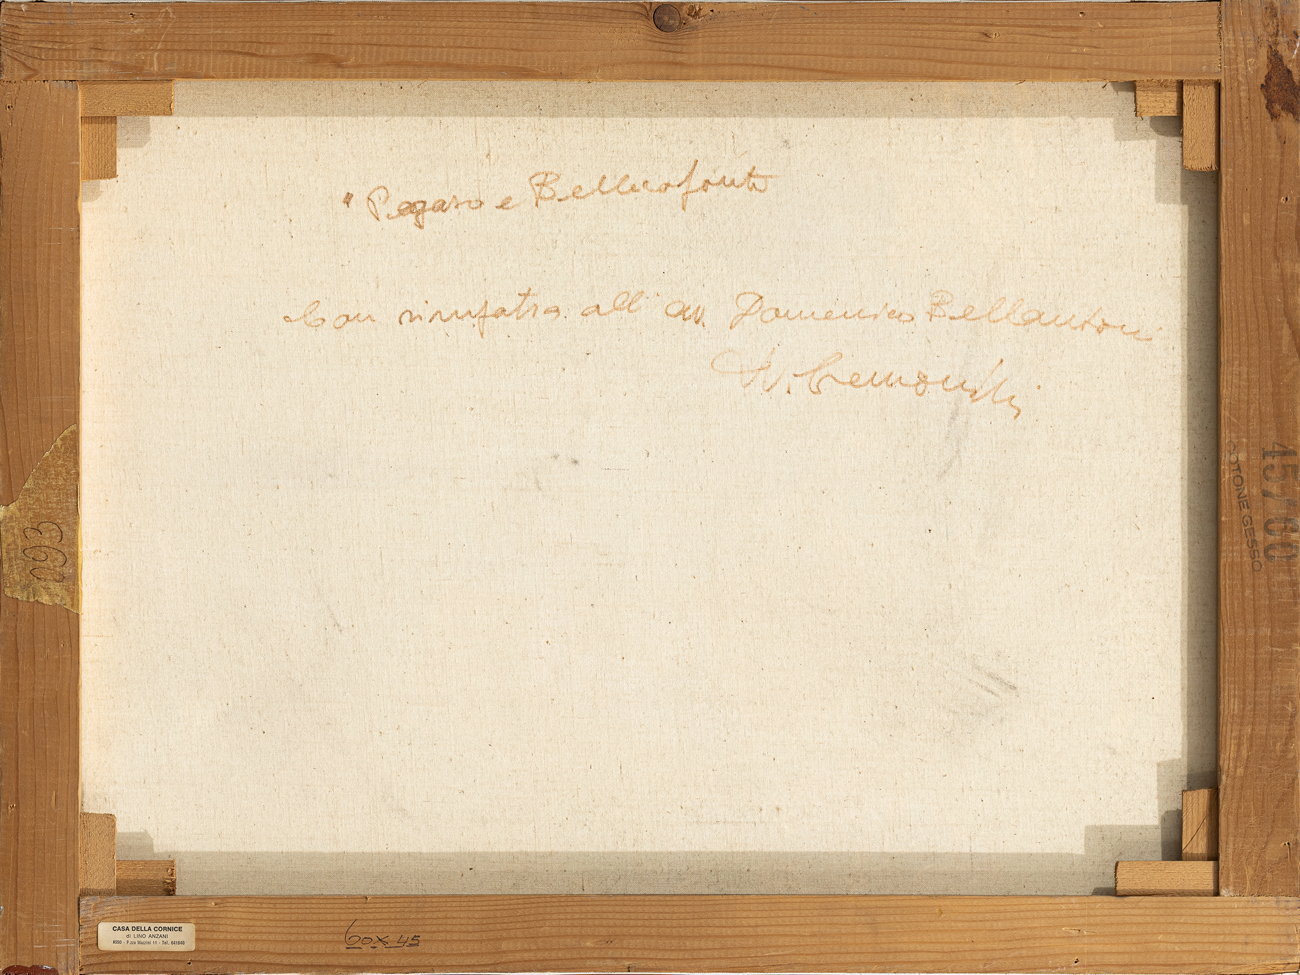 " Pegaso e Bellerofonte
Con simpatia all' avv. Domenico Bellantoni
W. Cremonini
093
45/60
COTONE GESSO
CASA DELLA CORNICE
di LINO ANZANI
60x45